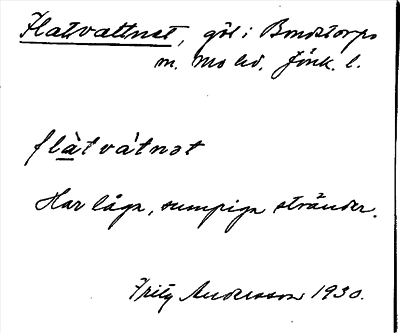 Flatvattnet, göl i Bondstorps
m. Mo hd. Jönk. l.
flàtvàtnət
Har låga, sumpiga stränder.
Fritz Andersson 1930.